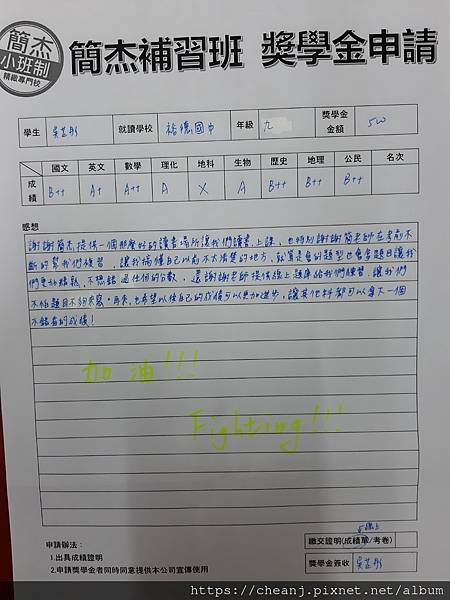 簡杰
小班制
精緻專門校
簡杰補習班 獎學金申請
學生 就讀學校 裕德國中 年級 九 獎學金金額 500
國文 英文 數學 理化 地科 生物 歷史 地理 公民 名次
成績 B++ A+ A++ A X A B++ B++ B++
感想
謝謝簡杰提供一個那麼好的讀書場所讓我們讀書、上課,也特別謝謝簡老師在考前不
斷的幫我們練習,讓我搞懂自己以前不太清楚的地方,就算是舊的題型也會拿題目讓我
們更加精熟,不想錯過任何的分數,還謝謝老師提供線上題庫給我們練習,讓我們
不怕題目不夠來寫,再來,也希望以往自己的成績可以更加進步,讓其他科都可以拿下一個
不錯看的成績!
加油!!!
Fighting!!!
申請辦法:
1.出具成績證明
2.申請獎學金者同時同意提供本公司宣傳使用
繳交證明(成績單/考卷)
獎學金簽收
https://cheanj.pixnet.net/album